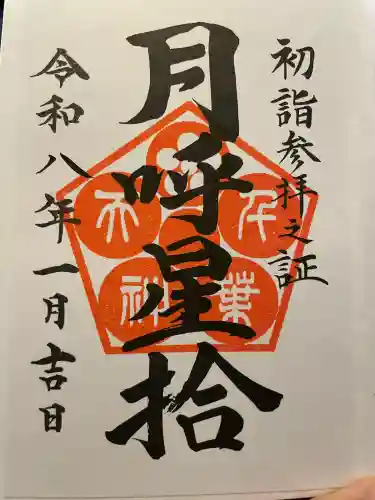 初詣参拝之証
月呼星拾
令和八年一月吉日
千葉
神